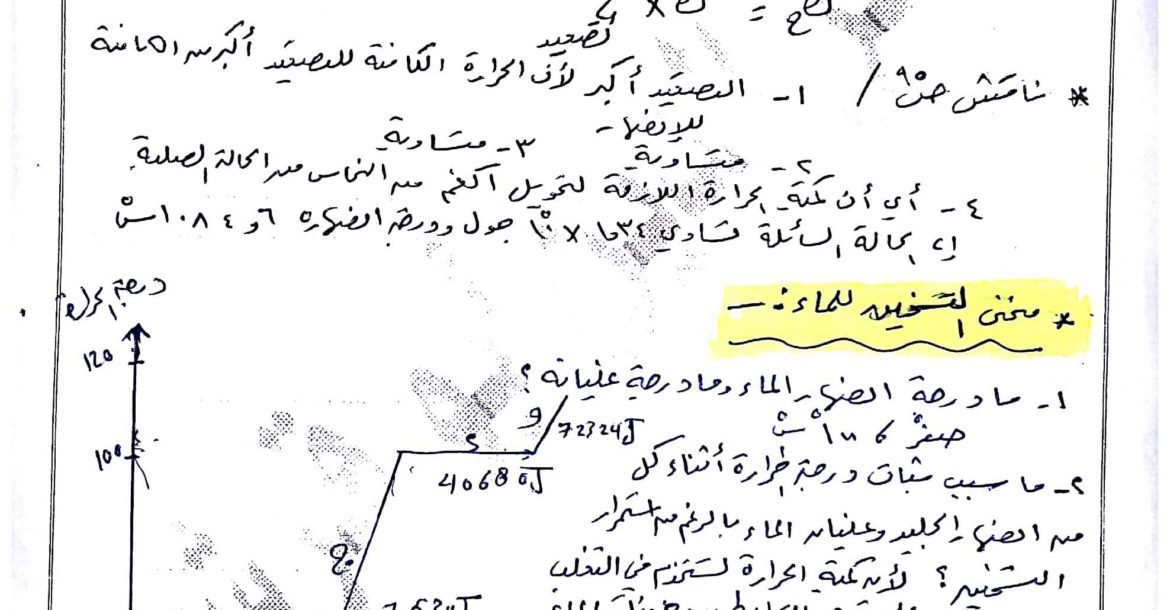 تصعيد
* ناقش ص٩ / ١- التصعيد أكبر لأن الحرارة الكامنة للتصعيد أكبر من الكامنة
للإنصهار
٢- متساوية ٣- متساوية
٤- أي أن كمية الحرارة اللازمة لتحويل ١ كغم من النحاس من الحالة الصلبة
إلى الحالة السائلة تساوي ١٠ جول ودرجة انصهاره ١٠٨٤,٦ سْ
* منحنى التسخين للماء: -
درجة الحرارة
120
100
١- ما درجة انصهار الماء وما درجة غليانه؟
صفرْ ، ١٠٠ْ سْ
و 72324J
40680J
٢- ما سبب ثبات درجة الحرارة أثناء كل
من انصهار الجليد وغليان الماء بالرغم من استمرار
التسخين؟ لأن كمية الحرارة تستخدم في التغلب